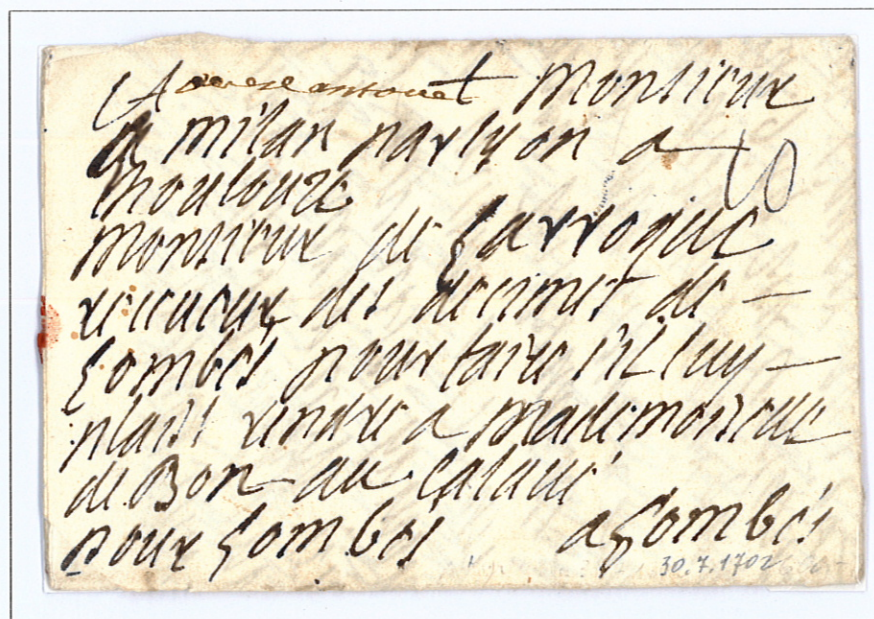 A Monsieur
milan par lyon a
thoulouze
monsieur de Garroque
receueur des decimes de
Lombés pour faire s'il luy
plaist rendre a mademoiselle
de Bon au
pour Lombés a Lombés
30.7.1702